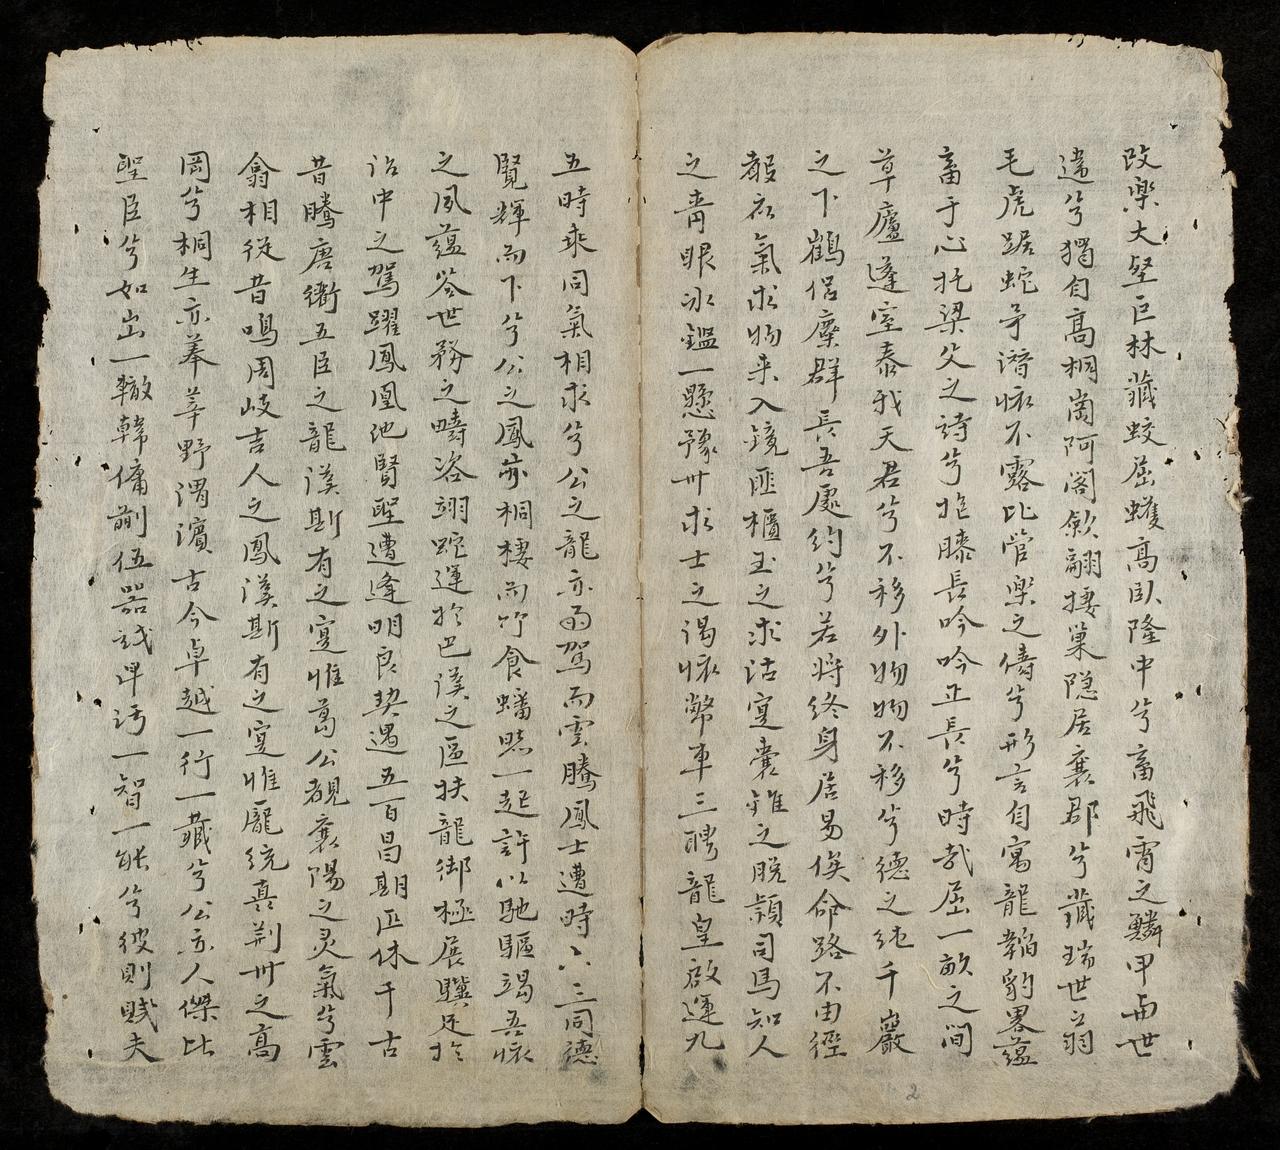 改樂大堅巨林藏蛟屈蠖高臥隆中兮畜飛霄之鱗甲與世
違兮獨自高桐崗阿閣歛翮棲巢隐居襄郡兮藏瑞世之羽
毛虎踞蛇 潛怀不露比管樂之儔兮形言自寓龍韜豹畧蕴
畜于心托梁父之詩兮抱膝長吟吟正長兮時哉屈一畝之間
草廬蓬室泰我天君兮不移外物物不移兮德之純千巖
之下鶴侣麋群長吾處約兮若將終身居易俟命路不由徑
榖衣氣求物来入鏡匪櫃玉之求沽寔囊錐之脫頴司馬知人
之青眼冰鑑一懸豫卅求士之渴怀幣車三聘龍皇啟運九
五時乘同氣相求兮公之龍亦雨駕而雲騰鳳士遭時六三同德
覽輝而下兮公之鳳亦桐棲而竹食蟠 一起許以馳驅竭吾怀
之夙蕴答世務之疇咨翊蛇運於巴漢之區扶龍御極展驥足於
治中之駕躍鳳凰池賢聖遭逢明良契遇五百昌期匹休千古
昔騰唐衢五臣之龍漢斯有之寔惟葛公覩襄陽之灵氣兮雲
翕相從昔鳴周岐吉人之鳳漢斯有之寔惟龐統真荆卅之高
岡兮桐生亦菶莘野渭濱古今卓越一行一藏兮公亦人傑比
聖臣兮如出一轍韩傭蒯伍器識卑污一智一能兮彼則賤夫